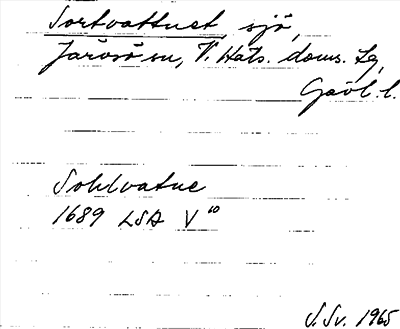 Sortvattnet, sjö,
Järvsö sn, V. Häls. doms. tg,
Gävl. l.
Sohlvatne
1689 LSA V¹⁰
S. Sv. 1965